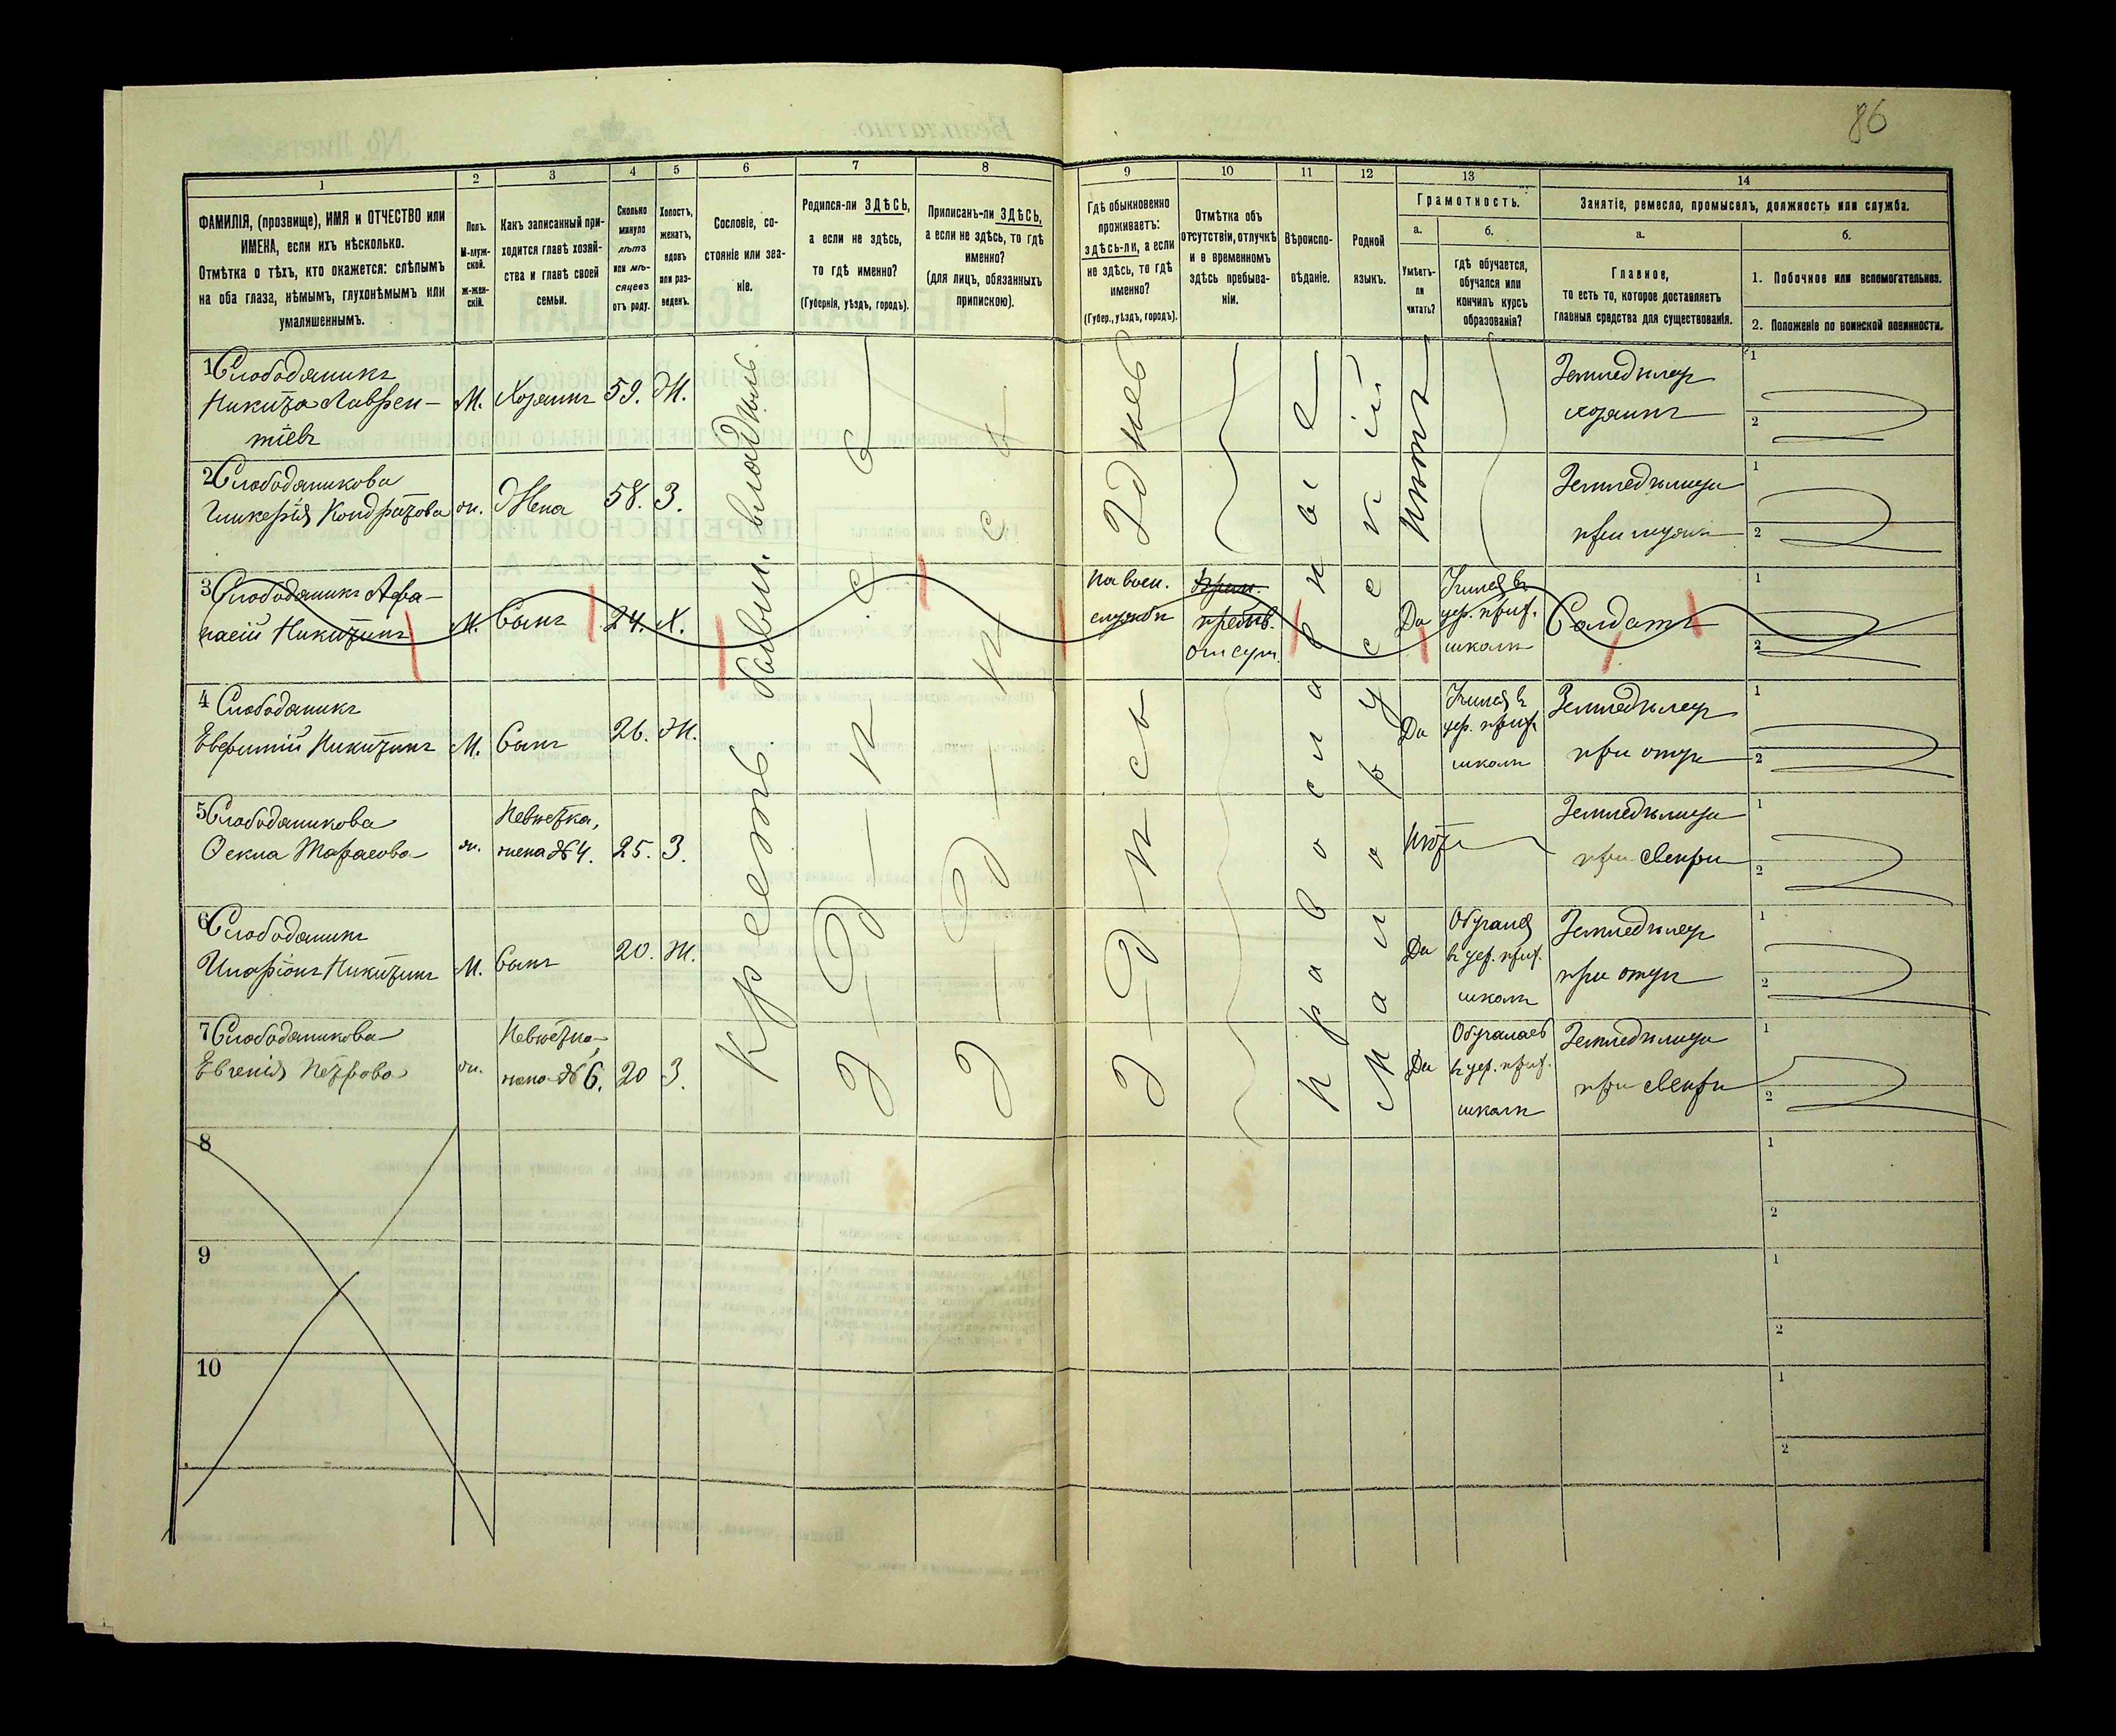 86
1
2
3
4
5
6
7
8
9
10
11
12
13
14
ФАМИЛІЯ, (прозвище), ИМЯ и ОТЧЕСТВО или
ИМЕНА, если ихъ нѣсколько.
Отмѣтка о тѣхъ, кто окажется: слѣпымъ
на оба глаза, нѣмымъ, глухонѣмымъ или
умалишеннымъ.
Полъ.
М-муж-
ской.
Ж-жен-
скій.
Какъ записанный при-
ходится главѣ хозяй-
ства и главѣ своей
семьи.
Сколько
минуло
лѣтъ
или мѣ-
сяцевъ
отъ роду.
Холостъ,
женатъ,
вдовъ
или раз-
веденъ.
Сословіе, со-
стояніе или зва-
ніе.
Родился-ли ЗДѢСЬ,
а если не здѣсь,
то гдѣ именно?
(Губернія, уѣздъ, городъ).
Приписанъ-ли ЗДѢСЬ,
а если не здѣсь, то гдѣ
именно?
(для лицъ, обязанныхъ
припискою).
Гдѣ обыкновенно
проживаетъ:
ЗДѢСЬ-ли, а если
не здѣсь, то гдѣ
именно?
(Губер., уѣздъ, городъ).
Отмѣтка объ
отсутствіи, отлучкѣ
и о временномъ
здѣсь пребыва-
ніи.
Вѣроиспо-
вѣданіе.
Родной
языкъ.
Грамотность.
а.
Умѣетъ-
ли
читать?
б.
Гдѣ обучается,
обучался или
кончилъ курсъ
образованія?
Занятіе, ремесло, промыселъ, должность или служба.
а.
Главное,
то есть то, которое доставляетъ
главныя средства для существованія.
б.
1. Побочное или вспомогательное.
2. Положеніе по воинской повинности.
1 Слободяникъ
Никита Лаврен-
тіевъ
М.
Хозяинъ
59.
Ж.
Крест. бывш. владѣльч.
Здѣсь
Здѣсь
Здѣсь
Православное
Малорусскій
Нѣтъ
Земледѣлецъ
хозяинъ
1
2
2 Слободяникова
Гликерія Кондратова
ж.
Жена
58.
З.
Земледѣлица
при мужѣ
1
2
3 Слободяникъ Афа-
насій Никитинъ
М.
Сынъ
24.
Х.
На воен.
службѣ
отсут.
Да
школѣ
Солдатъ
1
2
4 Слободяникъ
Евфимій Никитинъ
М.
Сынъ
26.
Ж.
Да
школѣ
Земледѣлецъ
при отцѣ
1
2
5 Слободяникова
Ѳекла Тарасова
ж.
Невѣстка,
жена №4.
25.
З.
Нѣтъ
Земледѣлица
при свекрѣ
1
2
6 Слободяникъ
Иларіонъ Никитинъ
М.
Сынъ
20.
Ж.
Да
Обучался
въ цер. прих.
школѣ
Земледѣлецъ
при отцѣ
1
2
7 Слободяникова
Евгенія Петрова
ж.
Невѣстка,
жена №6.
20
З.
Да
Обучалась
въ цер. прих.
школѣ
Земледѣлица
при свекрѣ
1
2
8
1
2
9
1
2
10
1
2